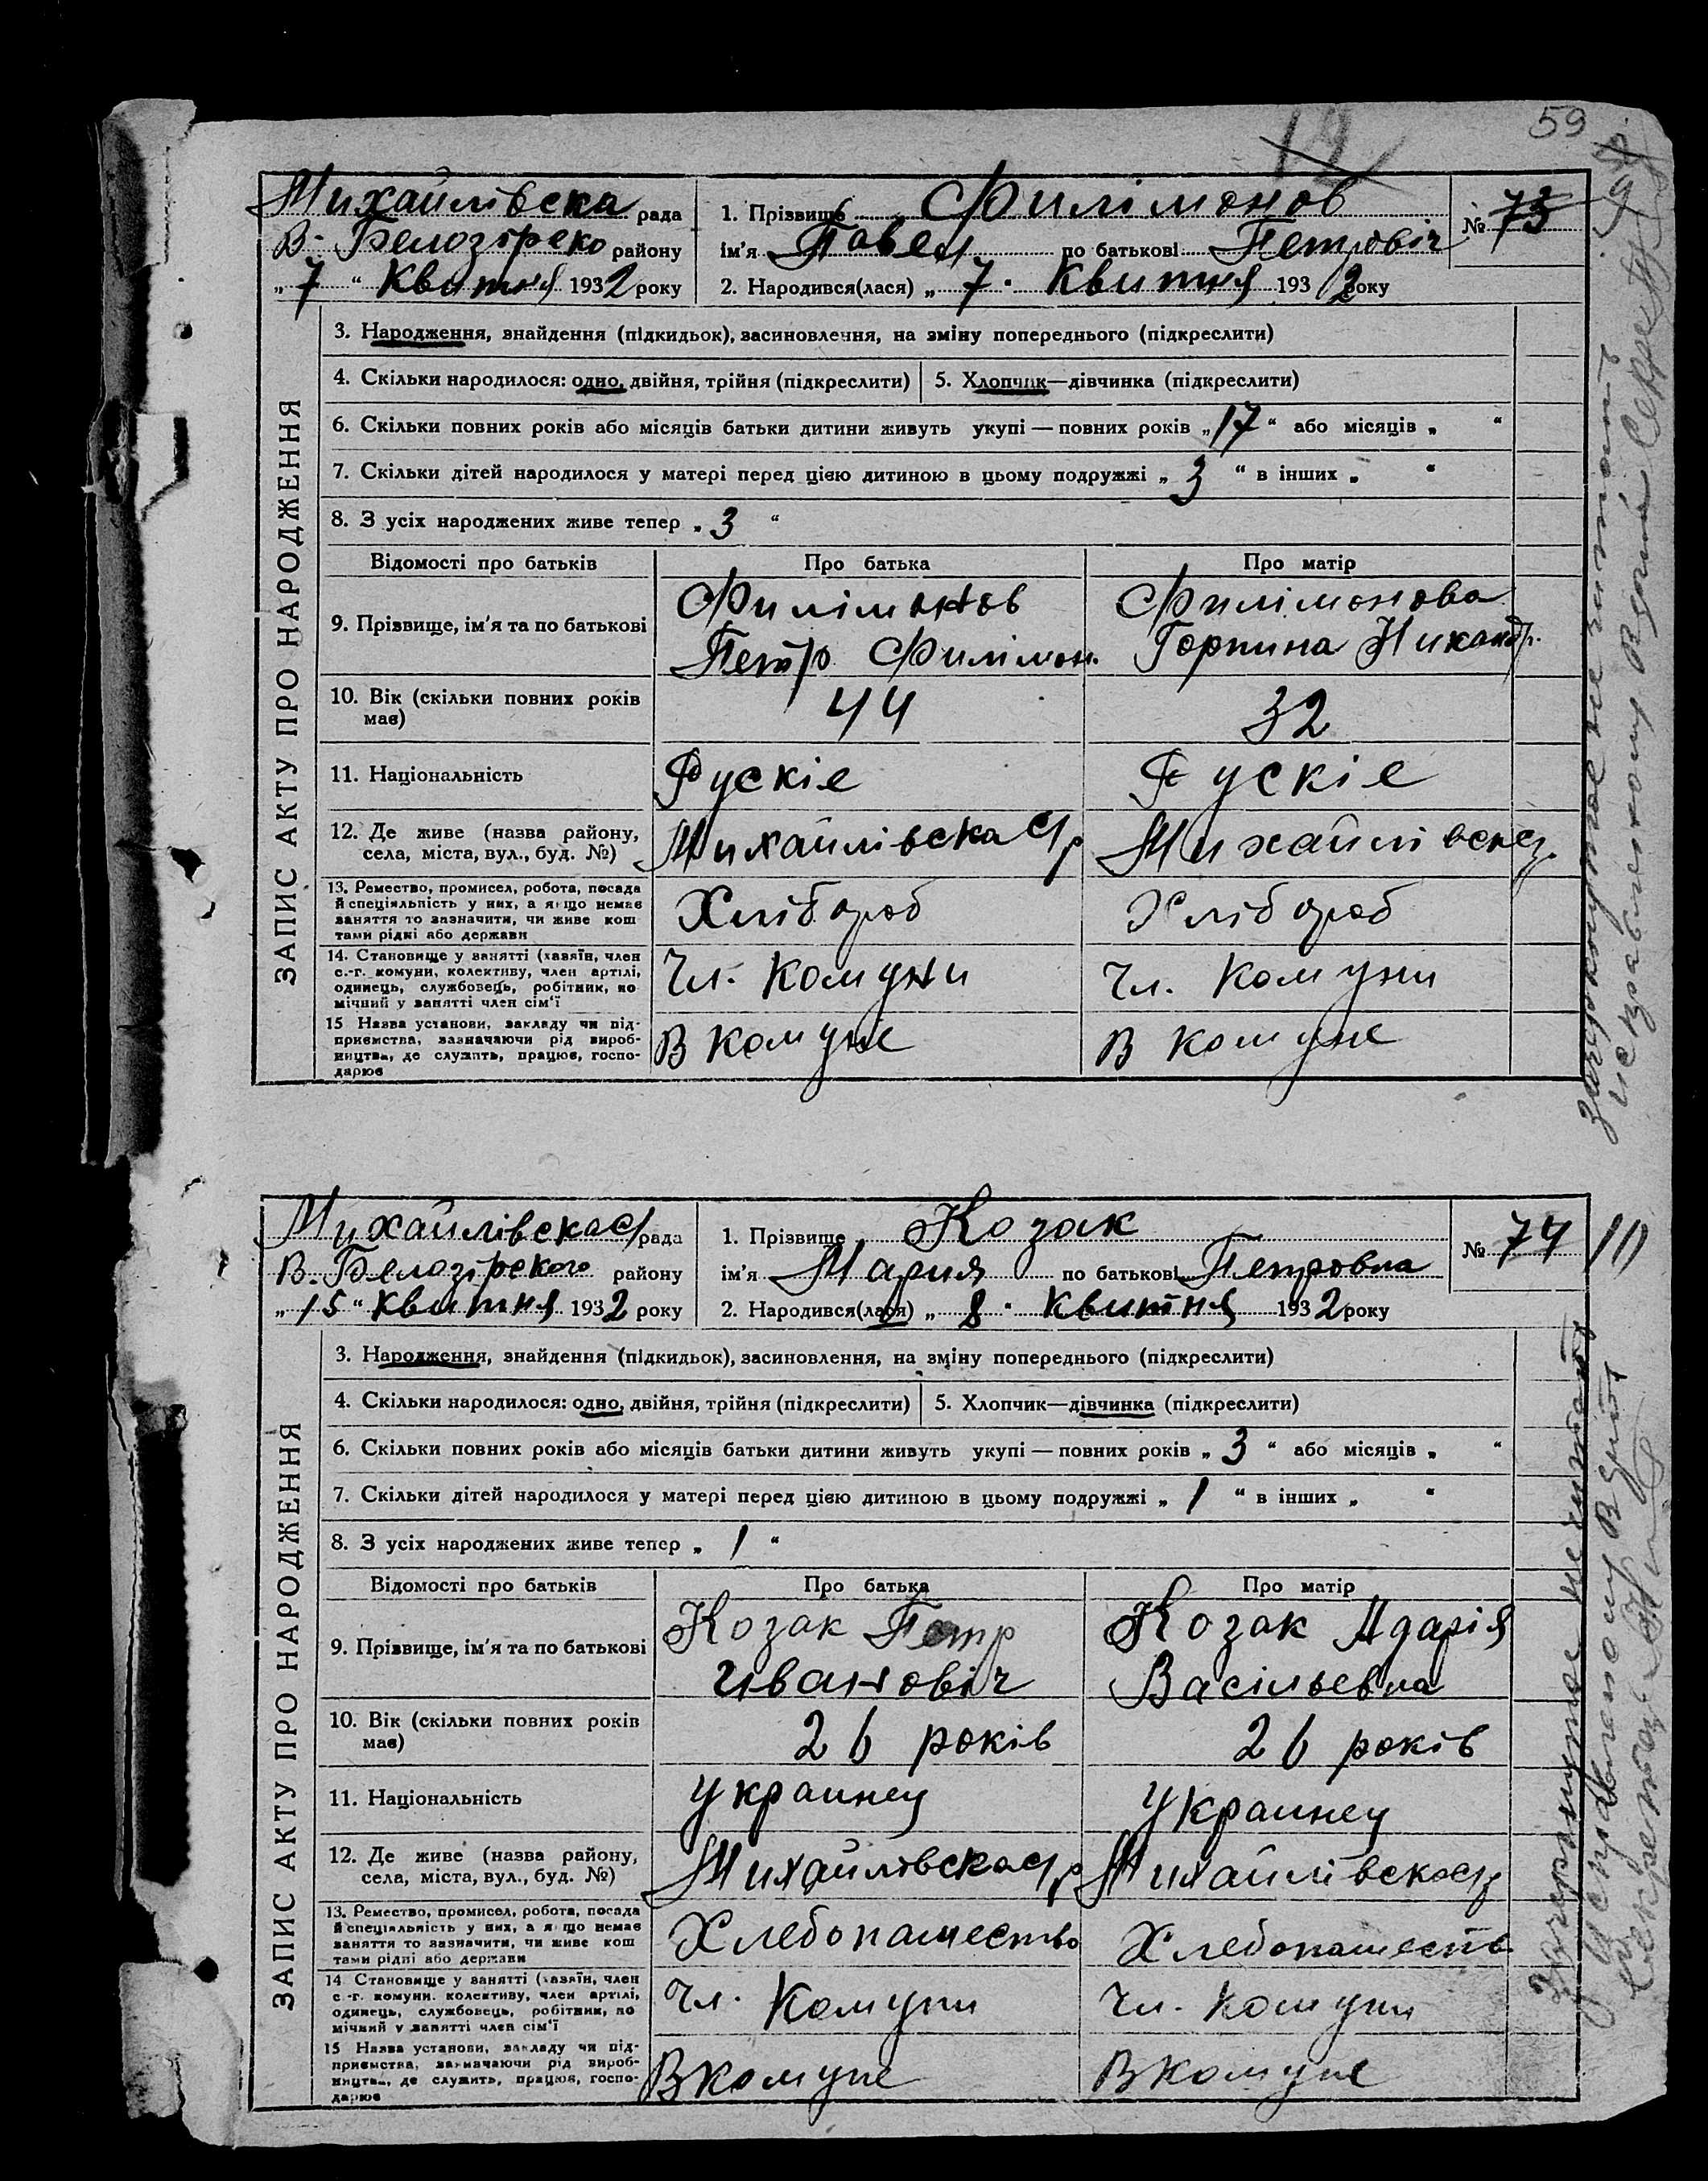 59
12
Михайлівска рада
В-Белозіреко району
„7“ Квитня 1932 року
1. Прізвище Филімонов
ім'я Павел по батькові Петровіч
2. Народився(лася) „7. Квитня 1932 року
№ 73
ЗАПИС АКТУ ПРО НАРОДЖЕННЯ
3. Народження, знайдення (підкидьок), засиновлення, на зміну попереднього (підкреслити)
4. Скільки народилося: одно, двійня, трійня (підкреслити) 5. Хлопчик—дівчинка (підкреслити)
6. Скільки повних років або місяців батьки дитини живуть укупі — повних років „17“ або місяців „ “
7. Скільки дітей народилося у матері перед цією дитиною в цьому подружжі „3“ в інших „ “
8. З усіх народжених живе тепер „3“
Відомості про батьків Про батька Про матір
9. Прізвище, ім'я та по батькові
Филімонов
Петр Филімон.
Филімонова
Горпина Никандр.
10. Вік (скільки повних років
має)
44
32
11. Національність
Рускіе
Рускіе
12. Де живе (назва району,
села, міста, вул., буд. №)
Михайлівска с/р
Михайлівск
13. Ремество, промисел, робота, посада
й спеціяльність у них, а якщо немає
заняття то зазначити, чи живе кош
тами рідні або держави
Хлібороб
Хлібороб
14. Становище у занятті (хазяїн, член
с.-г. комуни, колективу, член артілі,
одинець, службовець, робітник, по
мічний у занятті член сім'ї
Чл. Комуни
Чл. Комуни
15 Назва установи, закладу чи під-
приємства, зазначаючи рід вироб-
ництва, де служить, працює, госпо-
дарює
В комуне
В комуне
Зачеркнутое не читать
исправленому верить Секретарь
Михайлівска с/рада
В. Белозірского району
„15“ квитня 1932 року
1. Прізвище Козак
ім'я Мария по батькові Петровна
2. Народився(лася) „8. Квитня 1932 року
№ 74
10
ЗАПИС АКТУ ПРО НАРОДЖЕННЯ
3. Народження, знайдення (підкидьок), засиновлення, на зміну попереднього (підкреслити)
4. Скільки народилося: одно, двійня, трійня (підкреслити) 5. Хлопчик—дівчинка (підкреслити)
6. Скільки повних років або місяців батьки дитини живуть укупі — повних років „3“ або місяців „ “
7. Скільки дітей народилося у матері перед цією дитиною в цьому подружжі „1“ в інших „ “
8. З усіх народжених живе тепер „1“
Відомості про батьків Про батька Про матір
9. Прізвище, ім'я та по батькові
Козак Петр
Ивановіч
Козак Адарія
Васільевна
10. Вік (скільки повних років
має)
26 років
26 років
11. Національність
украинец
украинец
12. Де живе (назва району,
села, міста, вул., буд. №)
Михайлівска с/р
Михайлівска с/р
13. Ремество, промисел, робота, посада
й спеціяльність у них, а якщо немає
заняття то зазначити, чи живе кош
тами рідні або держави
Хлебопашество
Хлебопашеств
14 Становище у занятті (хазяїн, член
с.-г. комуни. колективу, член артілі,
одинець, службовець, робітник, по
мічний у занятті член сім'ї
Чл. Комуни
Чл. Комуни
15 Назва установи, закладу чи під-
приємства, зазначаючи рід вироб-
ництва, де служить, працює, госпо-
дарює
В комуне
В комуне
Зачеркнутое не читать
Исправленому верить
Секретарь